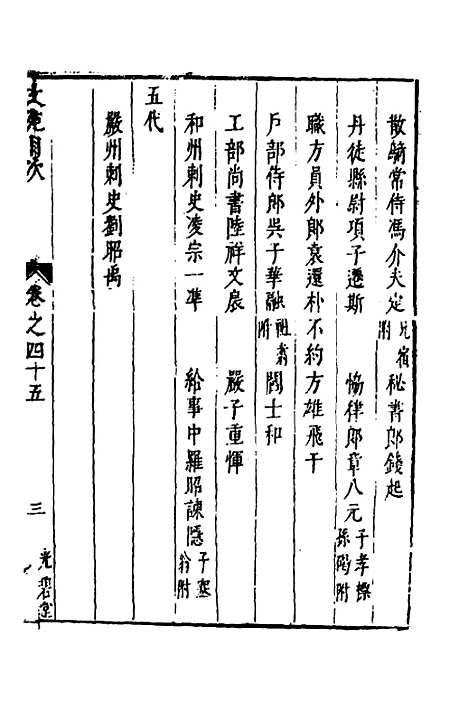 散騎常侍馮介夫定兄宿附 秘書郎錢起
丹徒縣尉項子遷斯 恊律郎章八元子孝標孫碣附
職方員外郎袁還朴不約方雄飛干
戶部侍郎吳子華融祖翥附 閻士和
工部尚書陸祥文扆 嚴子重惲
和州刺史凌宗一準 給事中羅昭諫隱子塞翁附
五代
嚴州刺史劉昭禹
卷之四十五 三 光碧堂